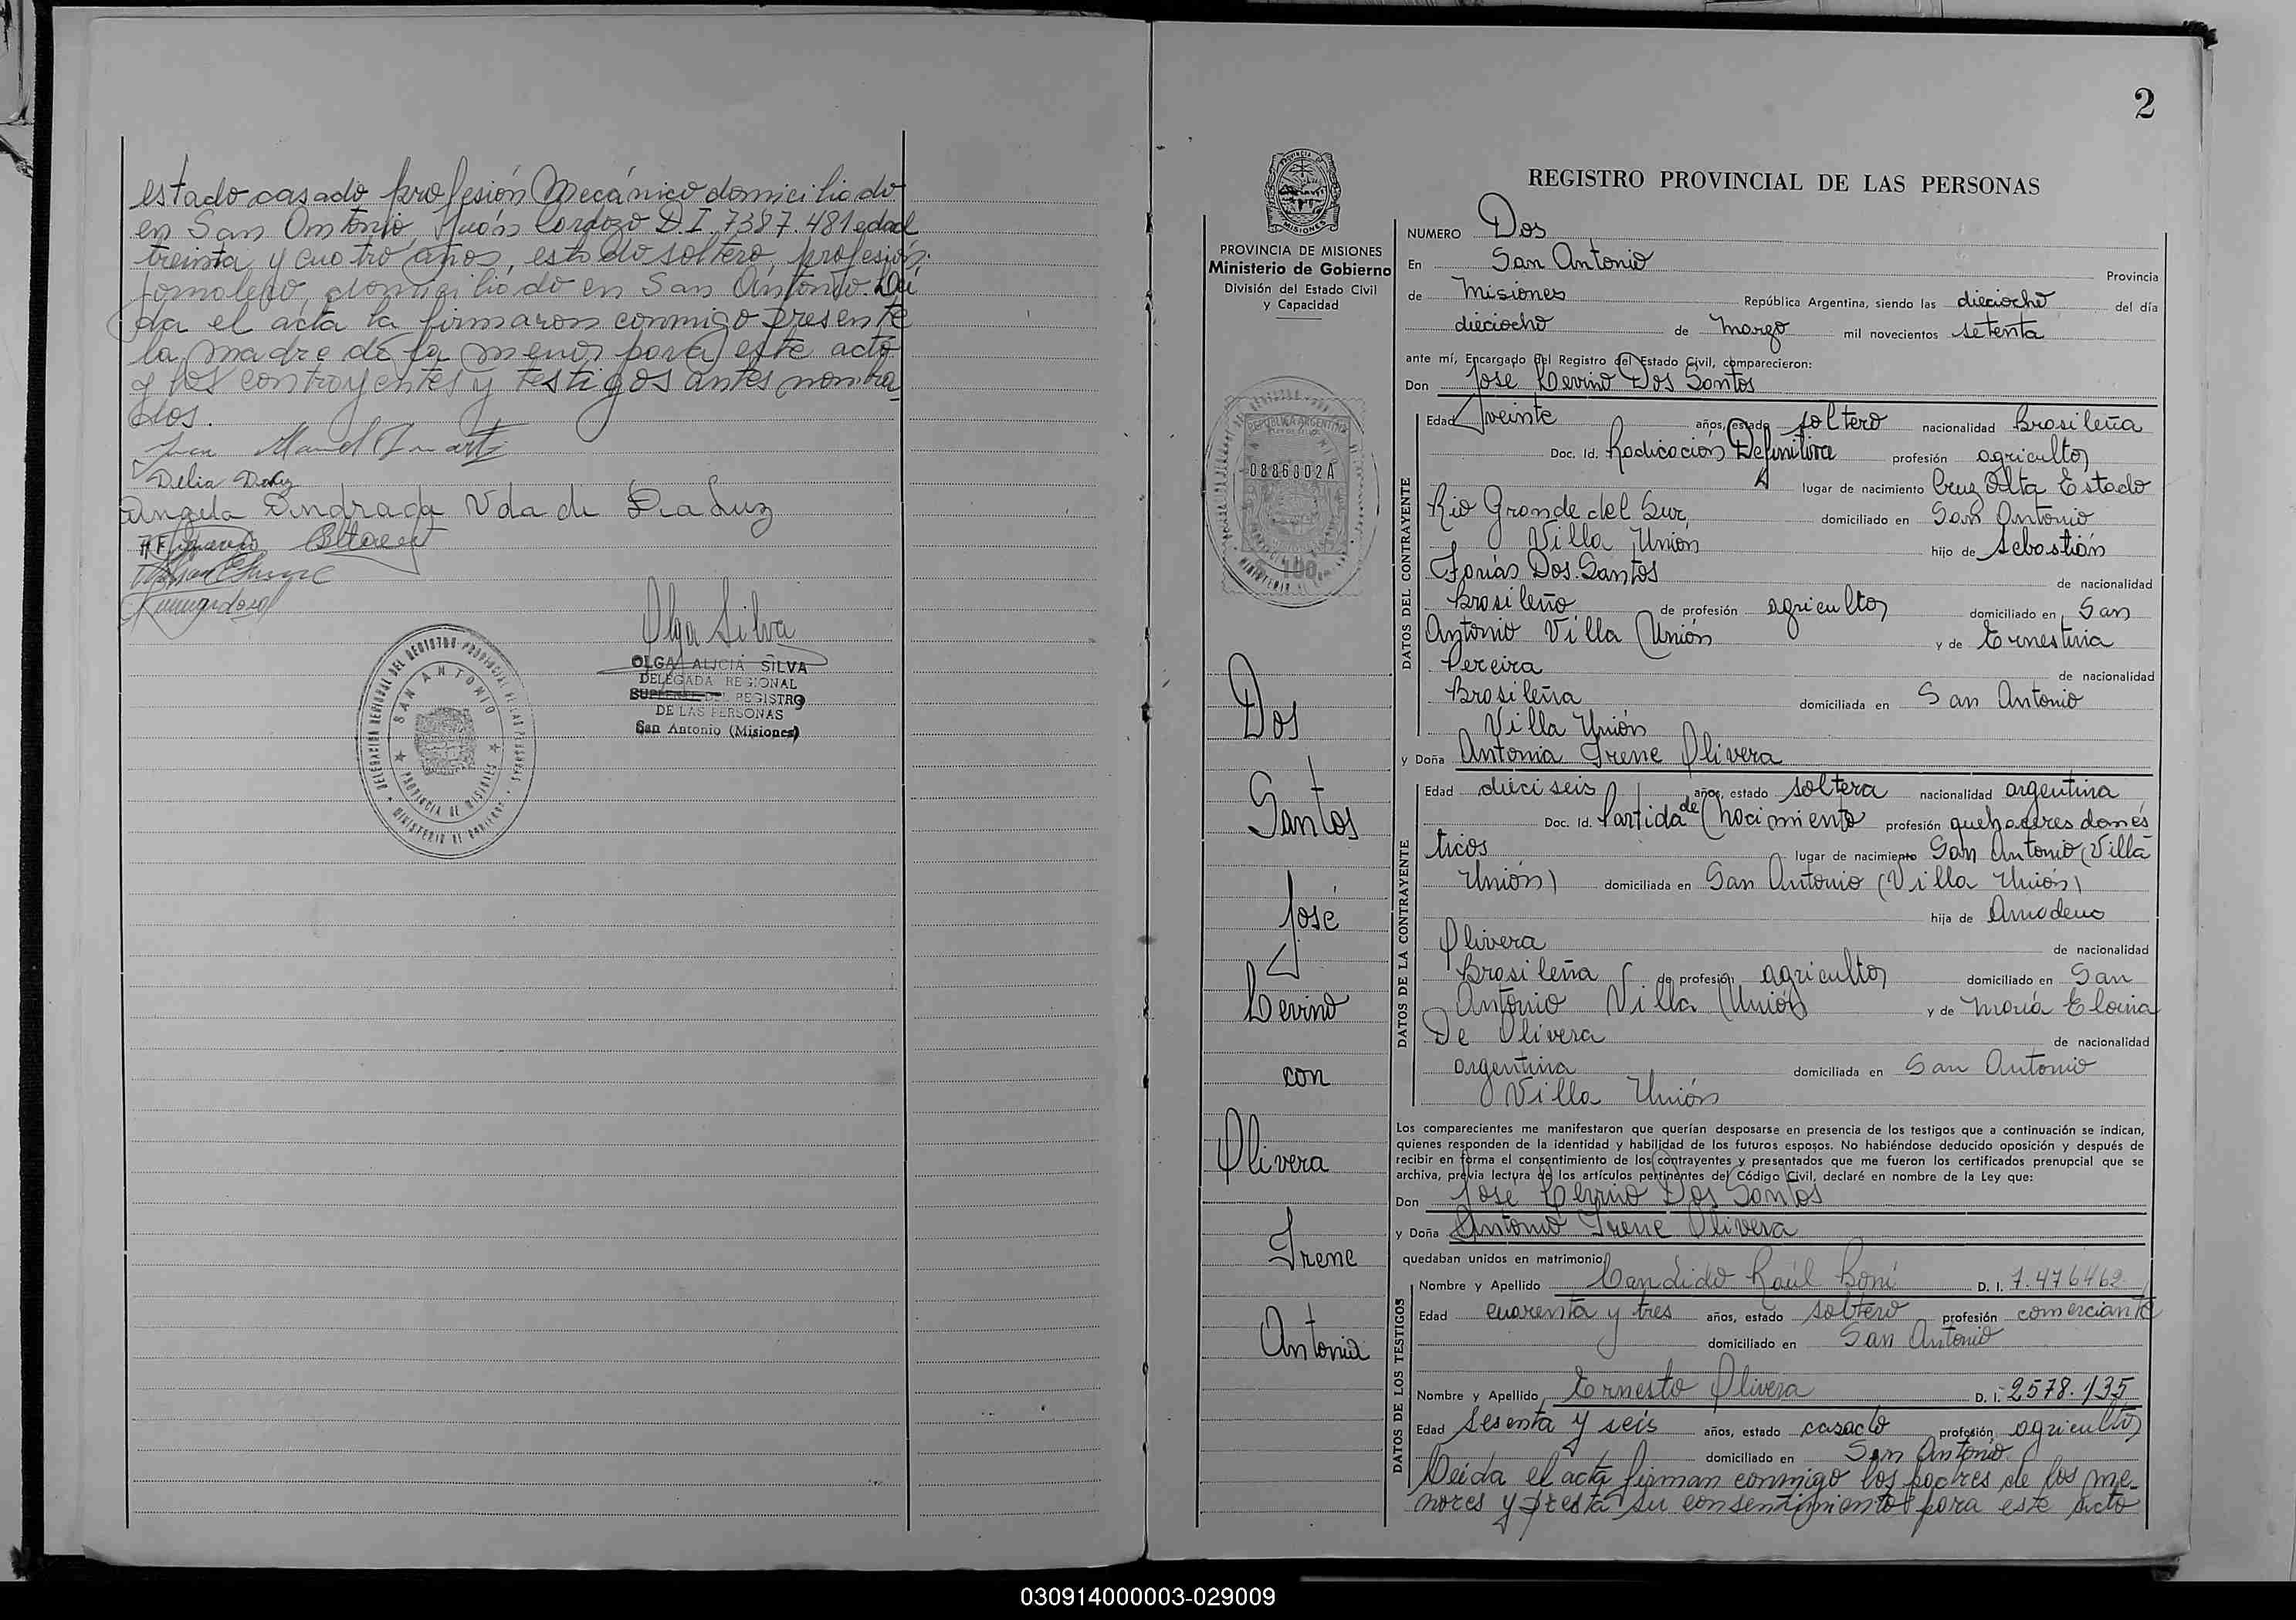 estado casado profesión Mecánico domiciliado
en San Antonio, Cardozo D.I. 7387.481 edad
treinta y cuatro años, estado soltero, profesión
domiciliado en San Antonio. Leí
da el acta la firmaron conmigo presente
la madre de la menor para este acto
y los contrayentes y testigos antes nombra
dos.
Juan Manuel Duarte
Delia
Angela Andrada Vda de Da Luz
Olga Silva
OLGA ALICIA SILVA
DELEGADA REGIONAL
SUPLENTE DEL REGISTRO
DE LAS PERSONAS
San Antonio (Misiones)
DELEGACION REGIONAL DEL REGISTRO PROVINCIAL DE LAS PERSONAS
SAN ANTONIO
PROVINCIA DE MISIONES
MINISTERIO DE GOBIERNO
2
PROVINCIA DE
MISIONES
PROVINCIA DE MISIONES
Ministerio de Gobierno
División del Estado Civil
y Capacidad
REPUBLICA ARGENTINA
0886802A
100
Dos
Santos
José
Levino
con
Olivera
Irene
Antonia
REGISTRO PROVINCIAL DE LAS PERSONAS
NUMERO Dos
En San Antonio Provincia
de Misiones República Argentina, siendo las dieciocho del día
dieciocho de Marzo mil novecientos setenta
ante mí, Encargado del Registro del Estado Civil, comparecieron:
Don José Levino Dos Santos
DATOS DEL CONTRAYENTE
Edad veinte años, estado soltero nacionalidad Brasileña
Doc. Id. Radicación Definitiva profesión agricultor
lugar de nacimiento Cruz Alta Estado
Rio Grande del Sur, domiciliado en San Antonio
Villa Unión hijo de Sebastián
Farías Dos Santos de nacionalidad
Brasileño de profesión agricultor domiciliado en San
Antonio Villa Unión y de Ernestina
Pereira de nacionalidad
Brasileña domiciliada en San Antonio
Villa Unión
y Doña Antonia Irene Olivera
DATOS DE LA CONTRAYENTE
Edad dieciseis años, estado soltera nacionalidad argentina
Doc. Id. Partida de Nacimiento profesión quehaceres domés
ticos lugar de nacimiento San Antonio (Villa
Unión) domiciliada en San Antonio (Villa Unión)
hija de Amadeus
Olivera de nacionalidad
Brasileña de profesión agricultor domiciliado en San
Antonio Villa Unión y de María
De Olivera de nacionalidad
argentina domiciliada en San Antonio
Villa Unión
Los comparecientes me manifestaron que querían desposarse en presencia de los testigos que a continuación se indican,
quienes responden de la identidad y habilidad de los futuros esposos. No habiéndose deducido oposición y después de
recibir en forma el consentimiento de los contrayentes y presentados que me fueron los certificados prenupcial que se
archiva, previa lectura de los artículos pertinentes del Código Civil, declaré en nombre de la Ley que:
Don José Levino Dos Santos
y Doña Antonia Irene Olivera
quedaban unidos en matrimonio.
DATOS DE LOS TESTIGOS
Nombre y Apellido Candido Raúl Boni D. I. 7.476462
Edad cuarenta y tres años, estado soltero profesión comerciante
domiciliado en San Antonio
Nombre y Apellido Ernesto Olivera D. I. 2578.135
Edad sesenta y seis años, estado casado profesión agricultor
domiciliado en San Antonio
Leída el acta firman conmigo los padres de los me-
nores y presta su consentimiento para este acto
030914000003-029009